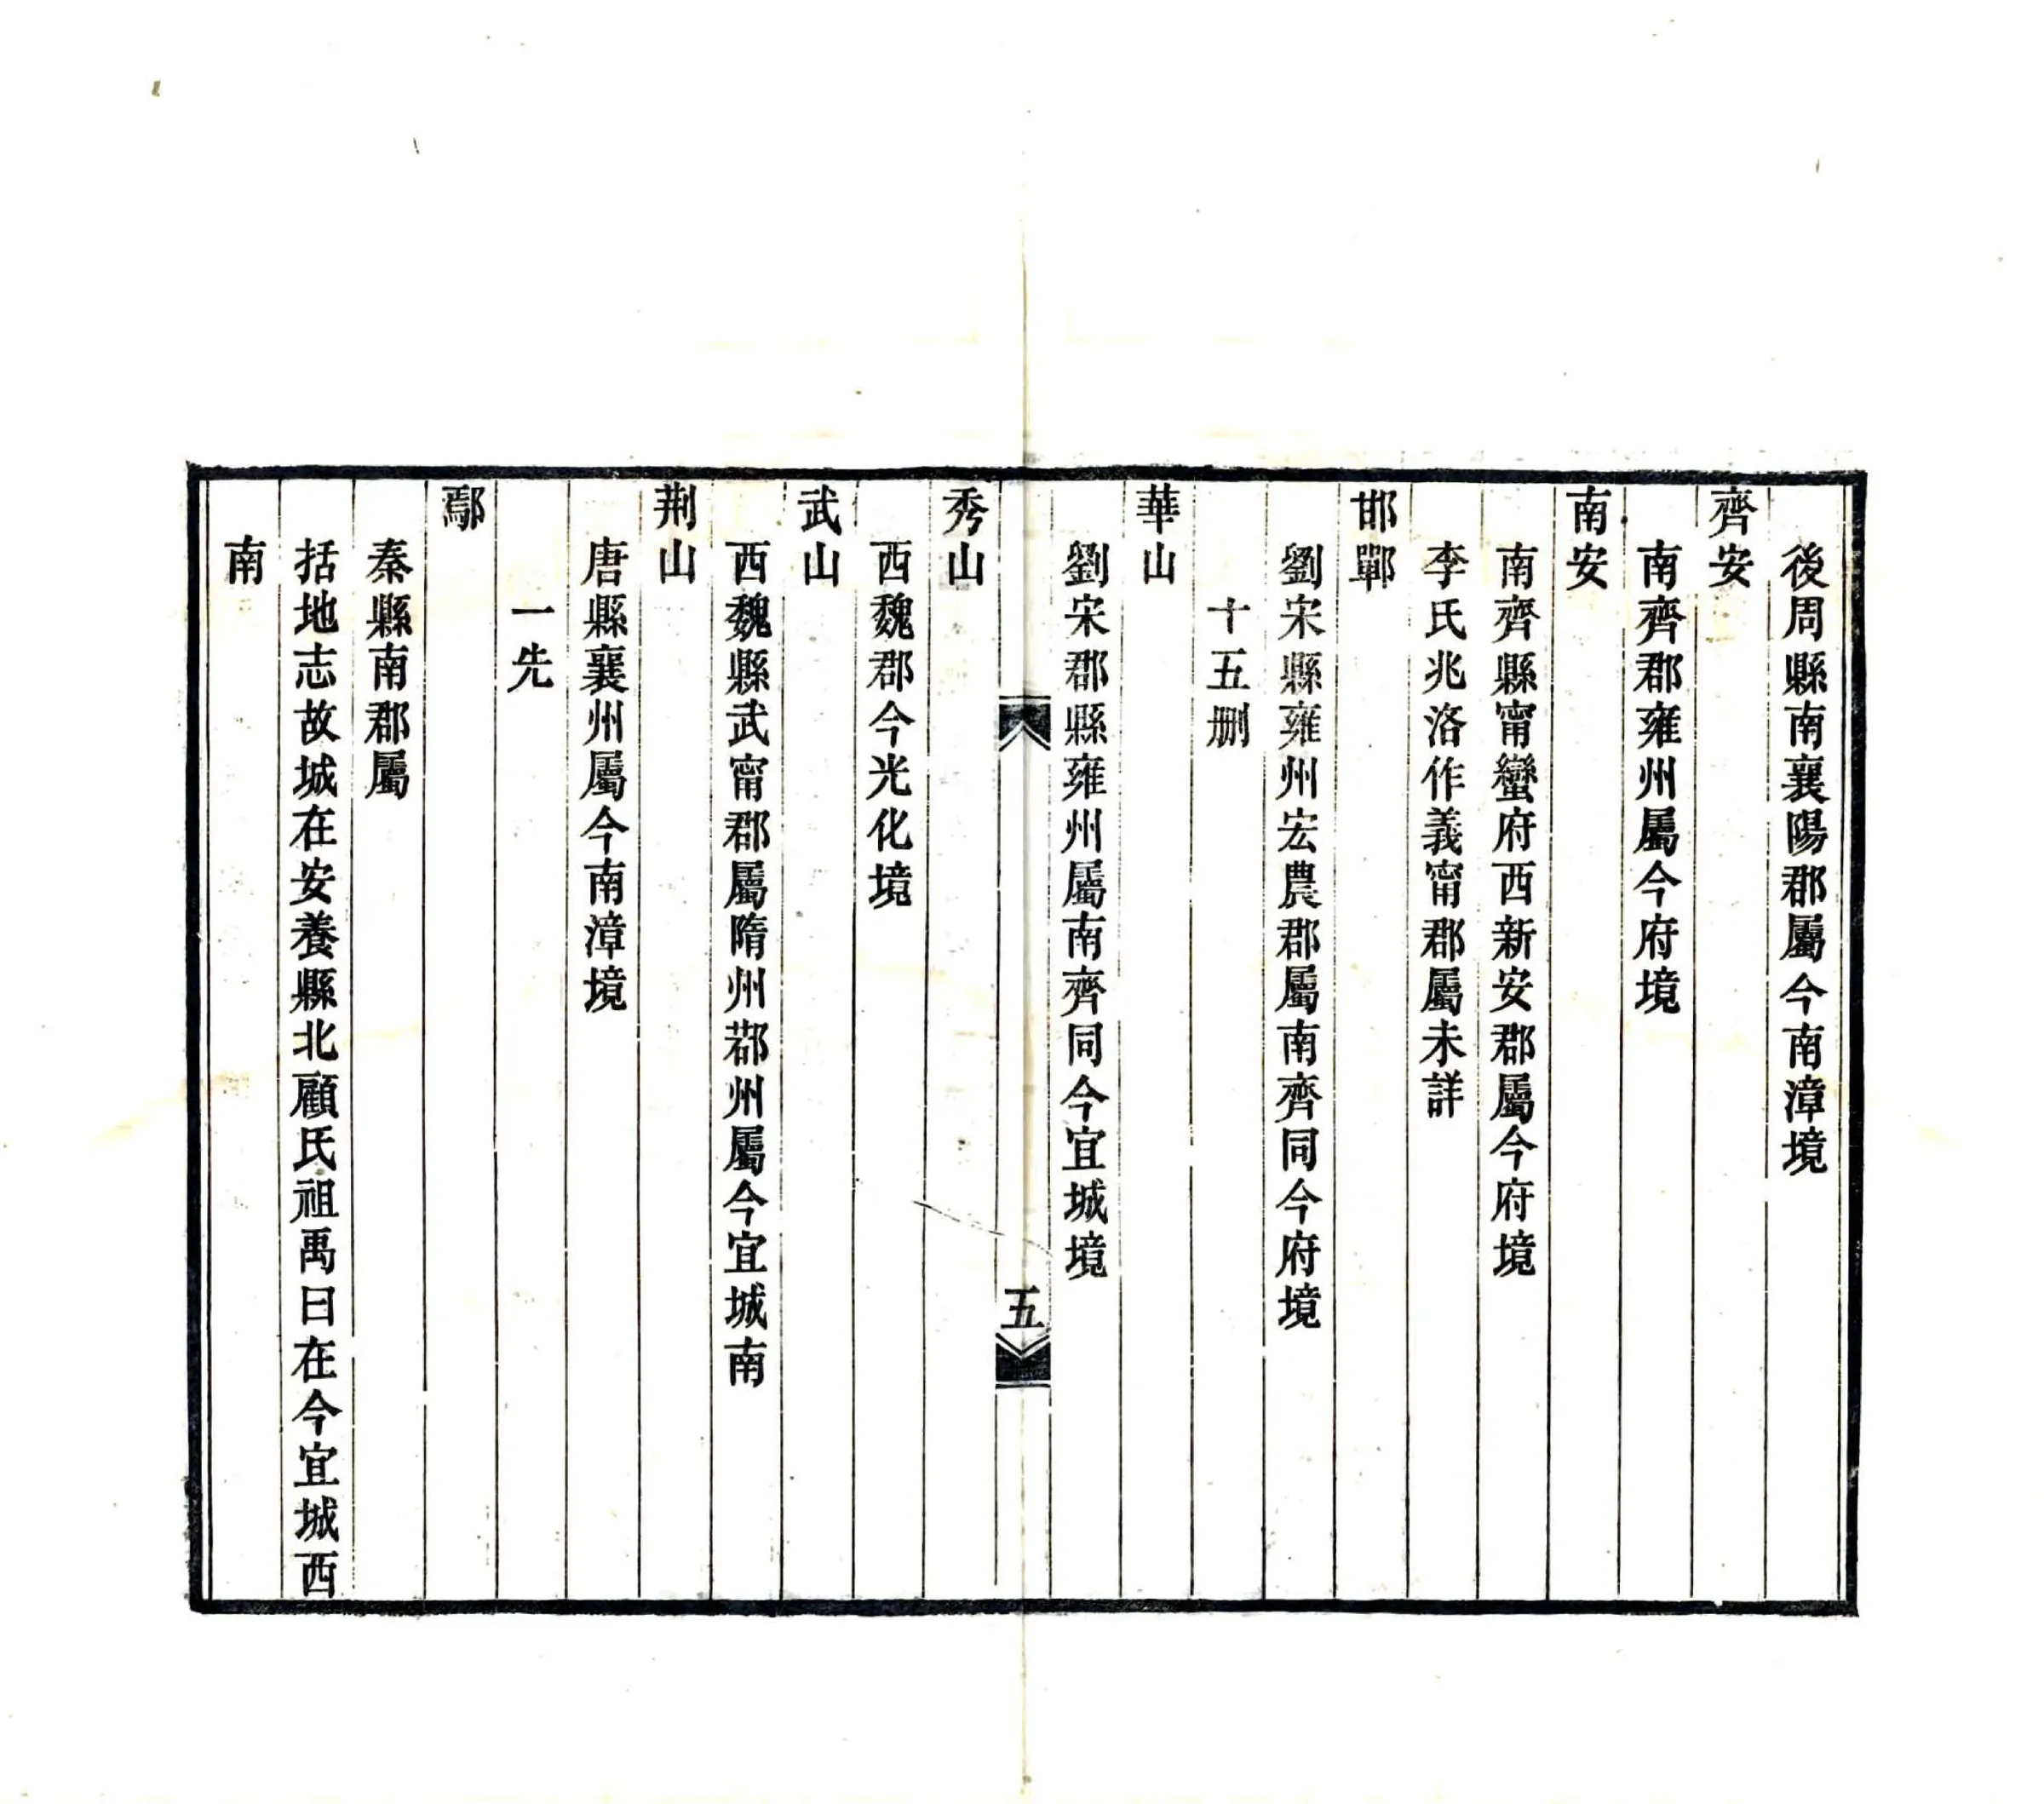 後周縣南襄陽郡屬今南漳境
齊安
南齊郡雍州屬今府境
南安
南齊縣甯蠻府西新安郡屬今府境
李氏兆洛作義甯郡屬未詳
邯鄲
劉宋縣雍州宏農郡屬南齊同今府境
十五刪
華山
劉宋郡縣雍州屬南齊同今宜城境
五
秀山
西魏郡今光化境
武山
西魏縣武甯郡屬隋州鄀州屬今宜城南
荆山
唐縣襄州屬今南漳境
一先
鄢
秦縣南郡屬
括地志故城在安養縣北顧氏祖禹曰在今宜城西
南